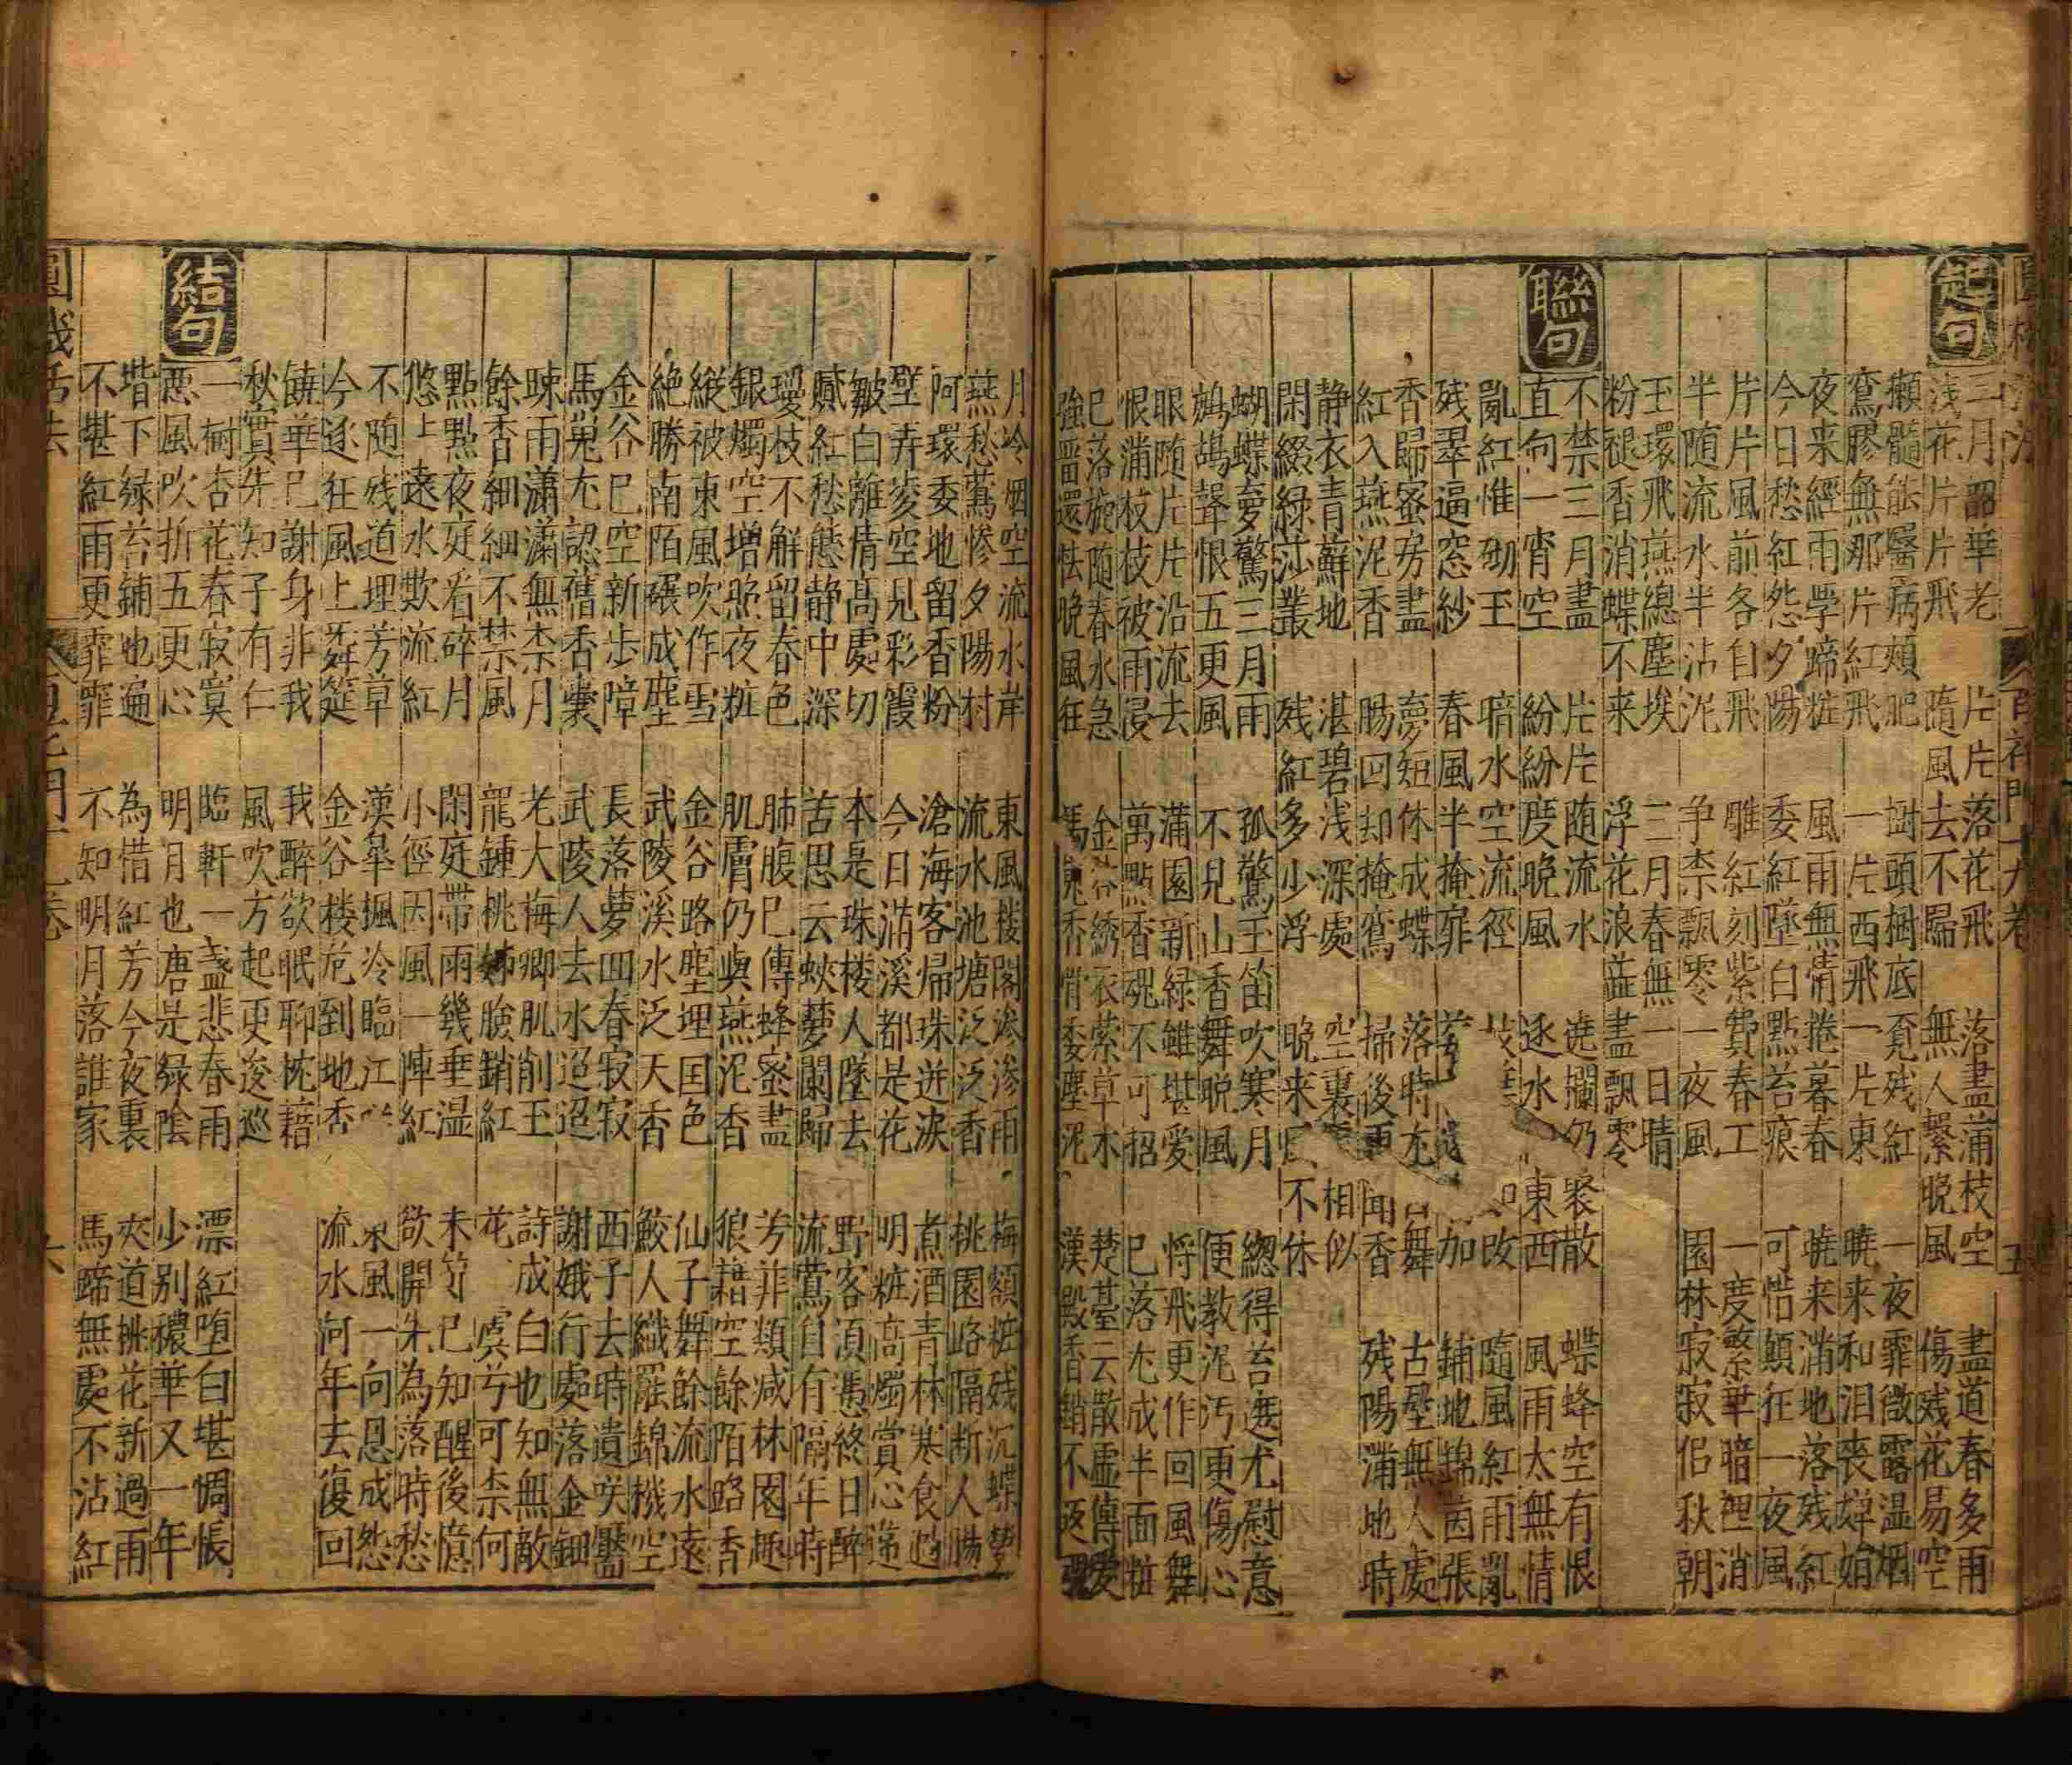 起句
三月韶華老 片片落花飛 落盡蒲枝空 盡道春多雨
浅花片片飛 隨風去不歸 無人繫晚風 傷残花易空
獺髓能醫病頰肥 樹頭樹底覔残紅 一夜霏微露湿烟
鸞膠無那片紅飛 一片西飛一片東 曉来和泪丧婵娟
夜来經雨學啼粧 風雨無情捲暮春 曉来滿地落残紅
今日愁紅怨夕陽 委紅墜白點苔痕 可惜顛狂一夜風
片片風前各自飛 雕紅刻紫費春工 一度繁華暗裡消
半随流水半沾泥 争柰飄零一夜風 園林寂寂侣秋朝
玉環飛燕總塵埃 三月春無一日晴
粉褪香消蝶不来 浮花浪蕋盡飄零
聯句
不禁三月盡 片片随流水 遶攔仍聚散 蝶蜂空有恨
直向一宵空 紛紛度晚風 逐水東西 風雨太無情
亂紅惟砌玉 暗水空流徑 改 隨風紅雨亂
残翠逼窓紗 春風半掩扉 加 鋪地錦茵張
香歸蜜房盡 夢短休成蝶 落時尤舞 古壁無人處
紅入燕泥香 腸回却掩鸞 掃後更聞香 残陽滿地時
静衣青蘚地 湛碧浅深處 空裏相似
閑綴緑莎叢 残紅多少浮 晩来不休
蝴蝶夢驚三月雨 孤鸞玉笛吹寒月 緫得苔遮尤慰意
鷓鴣聲恨五更風 不見山香舞晩風 便教泥汚更傷心
眼随片片沿流去 滿園新緑雖堪愛 将飛更作回風舞
恨滿枝枝被雨浸 萬點香魂不可招 已落尤成半面粧
已落旋随春水急 金谷綉衣萦草木 楚臺云散虚傳愛
強留還怯晩風狂 馬嵬香骨委塵泥 漢殿香銷不返
月冷烟空流水岸 東風楼閣渗渗雨 梅額粧残沉蝶夢
燕愁鶯慘夕陽村 流水池塘泛泛香 桃園路隔断人腸
阿環委地留香粉 滄海客帰珠迸淚 煮酒青林寒食過
壁弄麦空見彩霞 今日滿溪都是花 明粧高燭賞心違
皺白離情高處切 本是珠楼人墜去 野客須憑終日醉
膩紅愁態静中深 苦思云蛺夢闌歸 流鶯自有隔年時
瓊枝不解留春色 肺腹已傳蜂蜜盡 芳菲類减林園趣
銀燭空增照夜粧 肌膚仍與燕泥香 狼藉空餘陌路香
縱被東風吹作雪 金谷路塵埋国色 仙子舞餘流水遠
絶勝南陌碾成塵 武陵溪水泛天香 鮫人織罷錦機空
金谷已空新步障 長落夢回春寂寂 西子去時遺咲靨
馬嵬尤認舊香囊 武陵人去水迢迢 謝娥行處落金鈿
暕雨瀟瀟無柰月 老大梅卿肌削玉 詩成白也知無敵
餘香細細不禁風 龍鍾桃姊臉銷紅 花 虞兮可柰何
點點夜庭看碎月 閑庭帶雨幾垂湿 未 已知醒後憶
悠悠遠水欺流紅 小徑因風一陣紅 欲開先為落時愁
不随残道埋芳草 漢皐珮冷臨江 風一向恩成怨
今逐狂風上舞筵 金谷楼危到地香 流水何年去復回
饒華已謝身非我 我醉欲眠聊枕藉
秋實先知子有仁 風吹方起更逡巡
結句
一樹杏花春寂寞 臨軒一盞悲春雨 漂紅堕白堪惆悵
悪風吹折五更心 明月也唐是緑陰 少別穠華又一年
堦下緑苔鋪也遍 為惜紅芳今夜裏 夾道桃花新過雨
不堪紅雨更霏霏 不知明月落誰家 馬蹄無處不沾紅